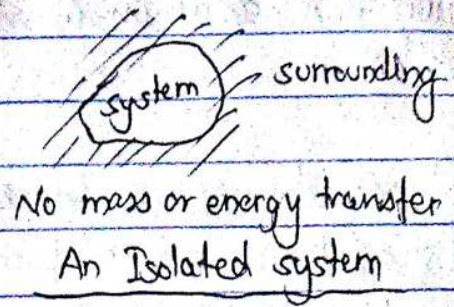 system
surrounding
No mass or energy transfer
An Isolated system